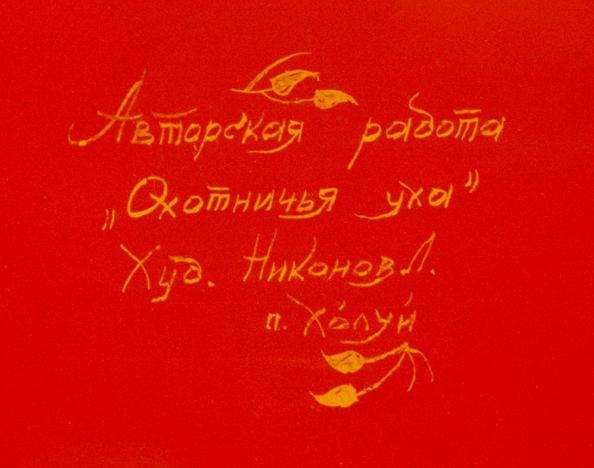 Авторская работа
„Охотничья уха”
Худ. Никонов Л.
п. Холуй